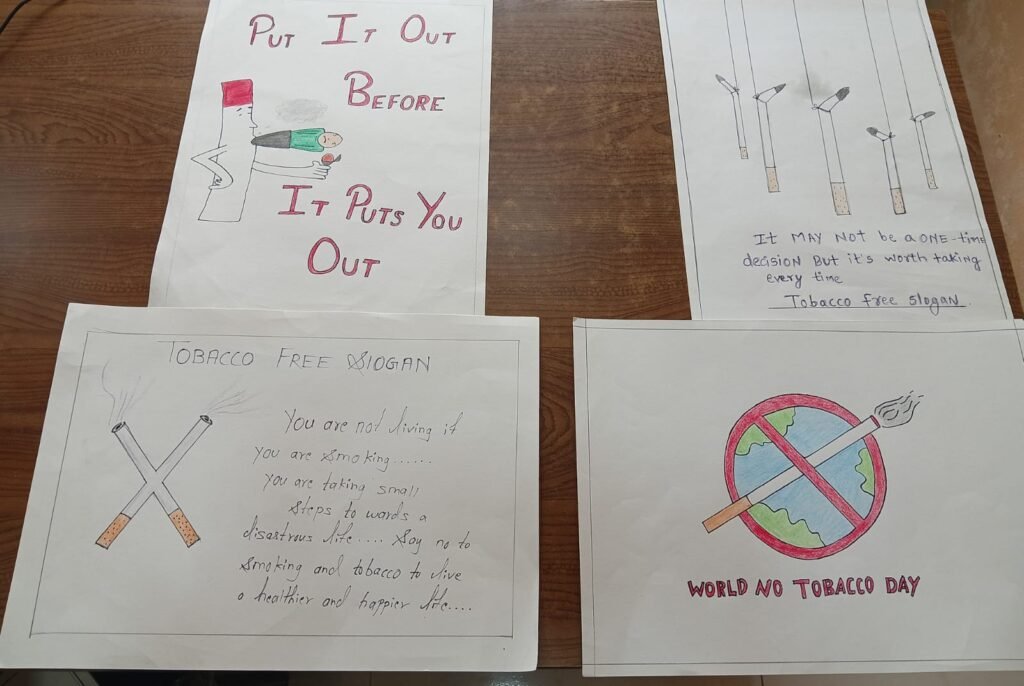 PUT IT OUT
BEFORE
IT PUTS YOU
OUT
IT MAY NOT be a ONE-time
decision But it's worth taking
every time
Tobacco free slogan
TOBACCO FREE SlOGAN
You are not living if
you are smoking......
you are taking small
steps to wards a
disastrous life.... Say no to
smoking and tobacco to live
a healthier and happier life....
WORLD NO TOBACCO DAY